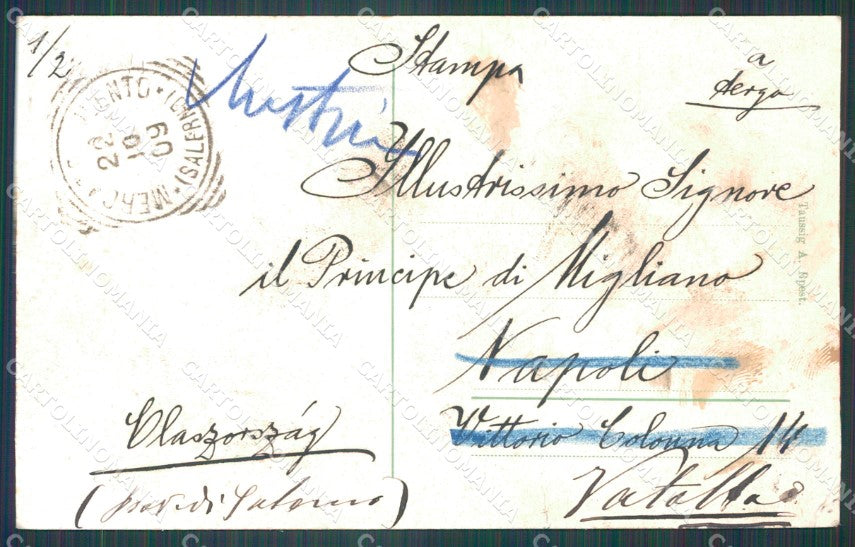 1/2
Stampa
a
tergo
Austria
MERCATO
CILENTO
(SALERNO)
22
10
09
Illustrissimo Signore
il Principe di Migliano
Napoli
Vittorio Colonna 14
Vatolla
Olaszország
(prov. di Salerno)
Taussig A. Bpest.
CARTOLINOMANIA